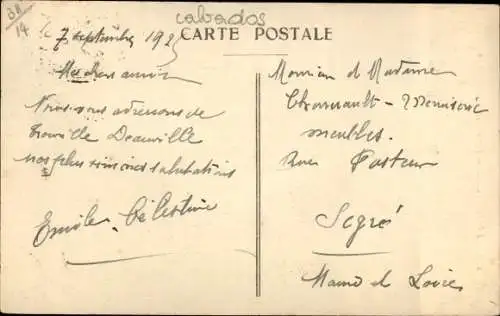 calvados
CARTE POSTALE
7 septembre 192
Mes chers amis
Nous vous adressons de
Trouville Deauville
nos plus sincères salutations
Emile. Célestine
Monsieur et Madame
meubles.
Rue Pasteur
Segré
Maine et Loire